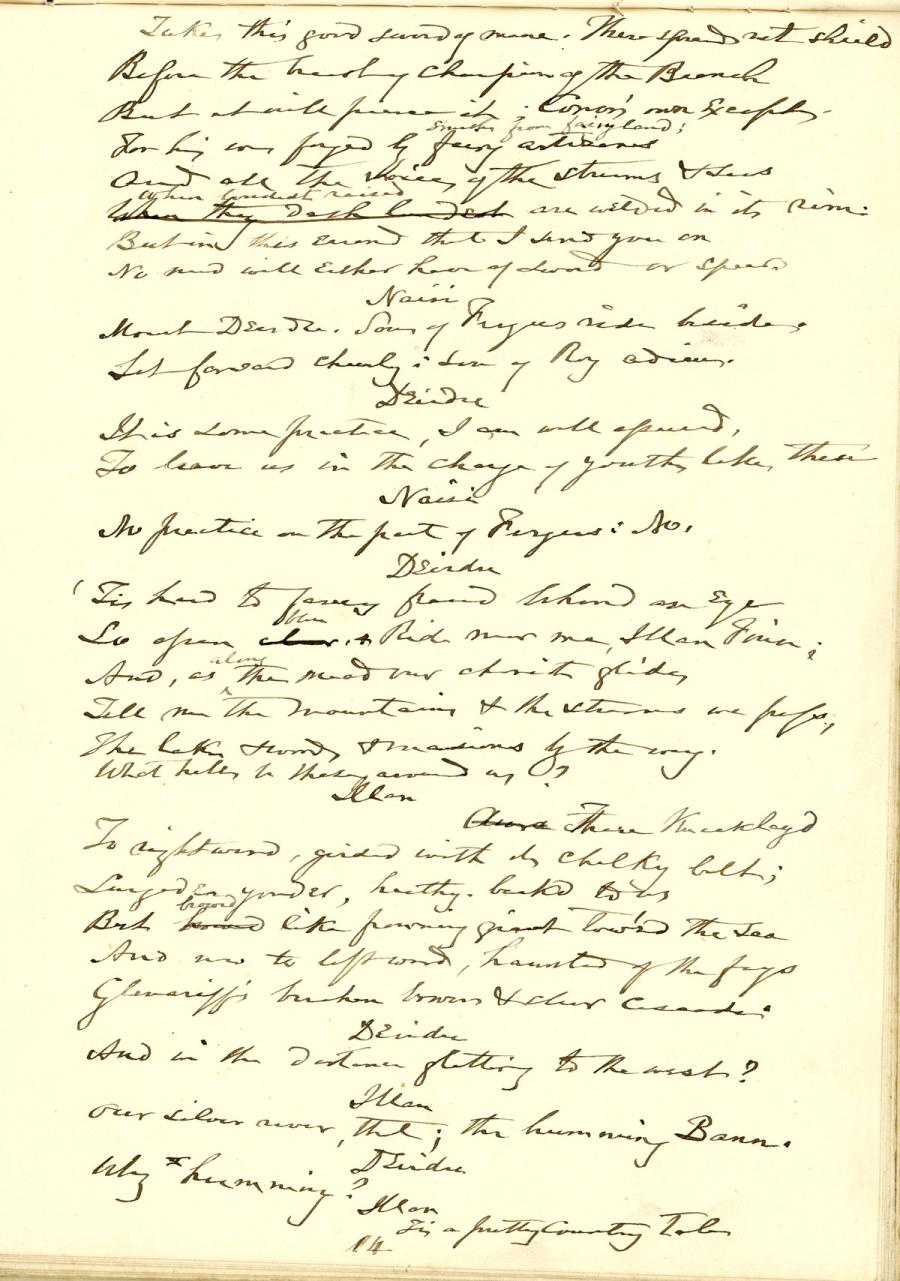 Take this good sword of mine. There spreads not shield
Before the breast of champion of the Branch
But it will pierce it. Conor's own except,
smiths from fairyland;
For his was forged by fairy artizans
And all the Voices of the streams & seas
when loudest raised
When they dash loudest are welded in its rim:
But in this errand that I send you on
No need will either have of sword or spear.
Naisi
Mount Deirdre. Sons of Fergus ride beside,
Set forward cheerly: Son of Roy adieu.
Deirdre
It is some practice, I am well assured,
To leave us in the charge of youths like these
Naisi
No practice on the part of Fergus: No.
Deirdre
'Tis hard to fancy fraud behind an Eye
blue
So open clear. Ride near me, Illan Finn;
along
And, as the mead our chariot glides,
Tell me the mountains & the streams we pass,
The lakes woods & mansions by the way.
What hills be these around us?
Illan
There Knocklayd
To rightward, girded with its chalky belt;
Lurgeden yonder, heathy-back'd to us
browed
But like frowning giant tow'rd the Sea
And now to leftward, haunted of the fays
Glenariff's broken bowers & clear cascades;
Deirdre
And in the distance glittering to the west?
Illan
Our silver river, that; the humming Bann.
Deirdre
Why humming?
Illan
Tis a pretty Country Tale
14